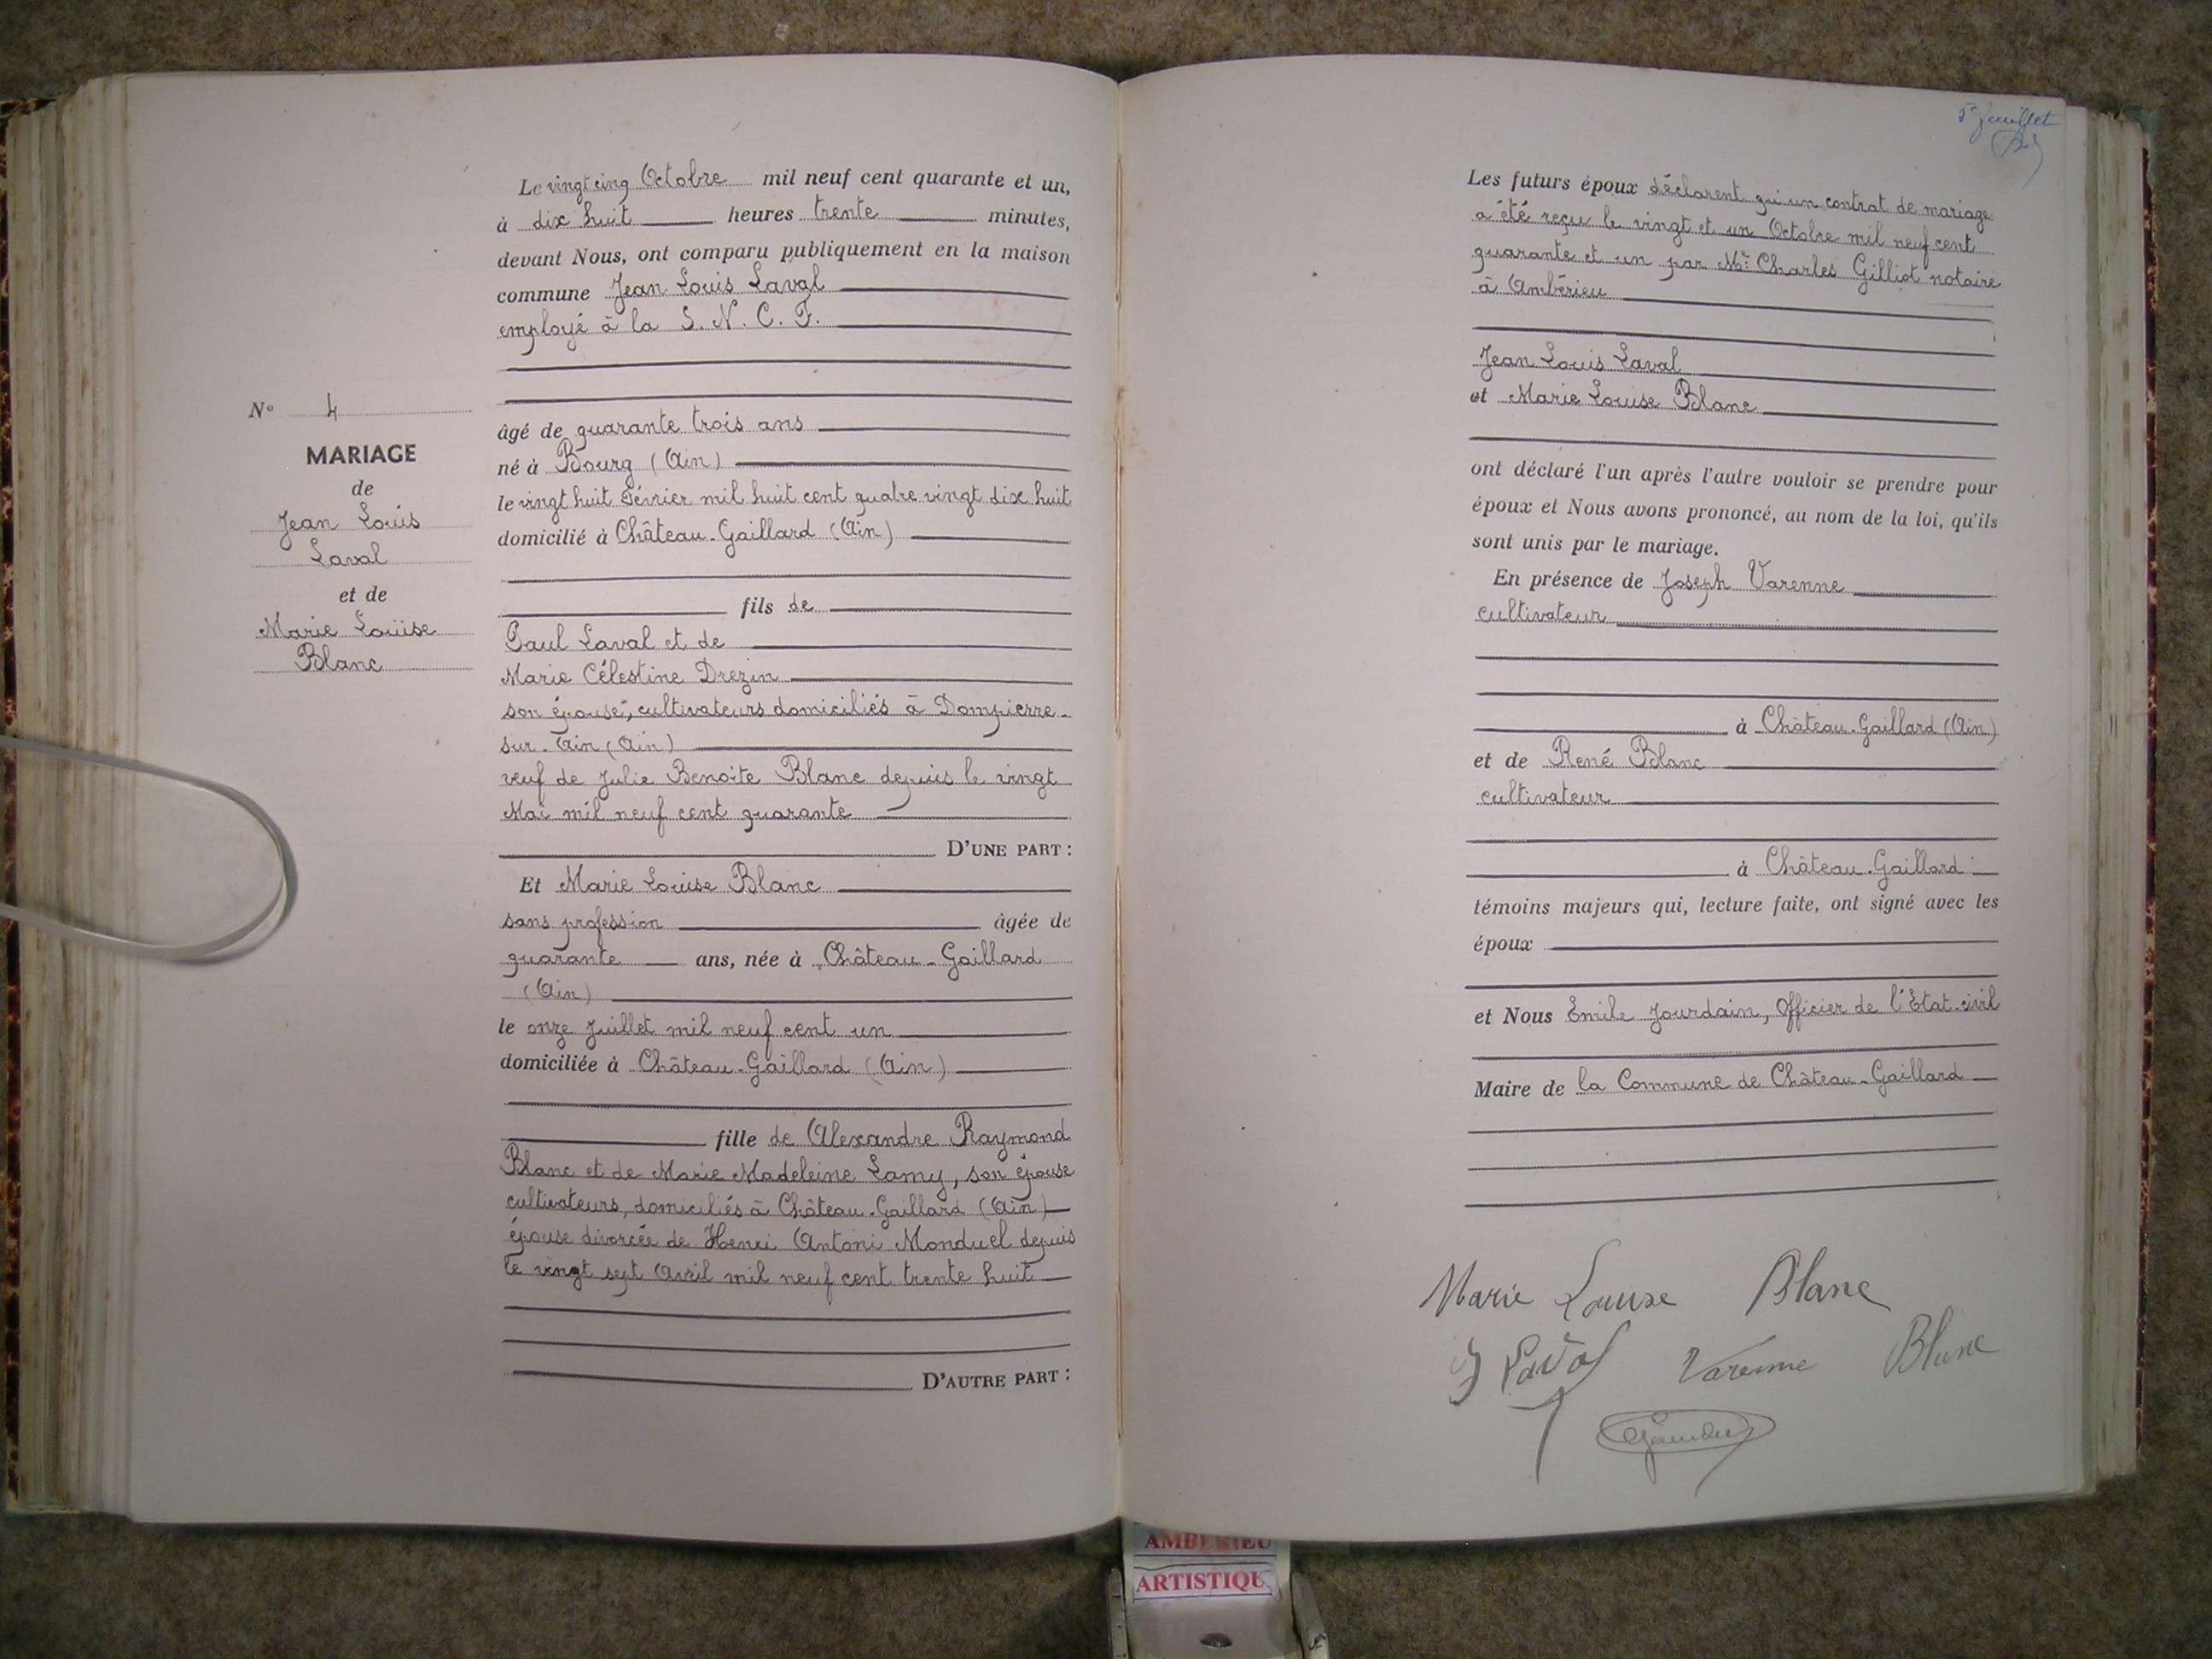 Le vingt cinq Octobre mil neuf cent quarante et un,
à dix huit heures trente minutes,
devant Nous, ont comparu publiquement en la maison
commune Jean Louis Laval
employé à la S. N. C. F.
N° 4
MARIAGE
de
Jean Louis
Laval
et de
Marie Louise
Blanc
âgé de quarante trois ans
né à Bourg (Ain)
le vingt huit Février mil huit cent quatre vingt dix huit
domicilié à Château-Gaillard (Ain)
fils de
Paul Laval et de
Marie Célestine Drezin
son épouse, cultivateurs domiciliés à Dompierre-
sur-Ain (Ain)
veuf de Julie Benoite Blanc depuis le vingt
Mai mil neuf cent quarante
D'UNE PART :
Et Marie Louise Blanc
sans profession âgée de
quarante ans, née à Château-Gaillard
(Ain)
le onze Juillet mil neuf cent un
domiciliée à Château-Gaillard (Ain)
fille de Alexandre Raymond
Blanc et de Marie Madeleine Lamy, son épouse
cultivateurs, domiciliés à Château-Gaillard (Ain)
épouse divorcée de Henri Antoni Monduel depuis
le vingt sept Avril mil neuf cent trente huit
D'AUTRE PART :
5e feuillet
Les futurs époux déclarent qu'un contrat de mariage
a été reçu le vingt et un Octobre mil neuf cent
quarante et un par Me Charles Gilliot notaire
à Ambérieu
Jean Louis Laval
et Marie Louise Blanc
ont déclaré l'un après l'autre vouloir se prendre pour
époux et Nous avons prononcé, au nom de la loi, qu'ils
sont unis par le mariage.
En présence de Joseph Varenne
cultivateur
à Château-Gaillard (Ain)
et de René Blanc
cultivateur
à Château-Gaillard
témoins majeurs qui, lecture faite, ont signé avec les
époux
et Nous Emile Jourdain, Officier de l'Etat-civil
Maire de la Commune de Château-Gaillard
Marie Louise Blanc
J Laval Varenne Blanc
AMBERIEU
ARTISTIQU